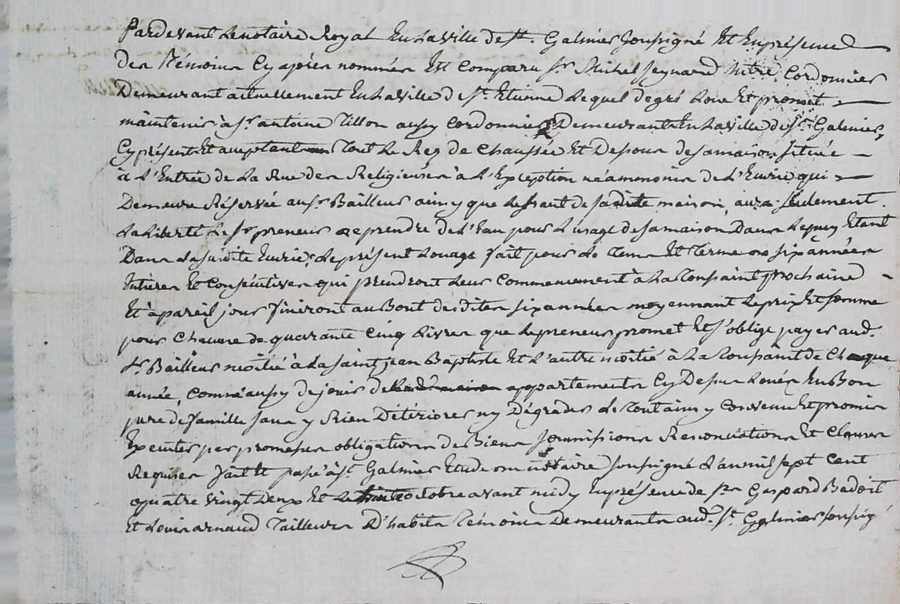 Pardevant Le notaire Royal En La Ville de St. Galmier soussigné Et En présence
des Témoins Cy après nommés Est Comparu Sr. Michel seynard Mtre. Cordonnier
Demeurant actuellement En La Ville de St. Etienne Lequel de gré Loue Et promet
maintenir à Sr. antoine Tillon aussy Cordonnier Demeurant En La Ville de St. Galmier,
Cy présent Et acceptant Tout Le Rez de Chaussée Et Dessous de sa maison située
à L'Entrée de La Rue des Religieuses à L'Exception néamoins de L'Ecurie qui
Demeure Réservée au Sr. Bailleur ainsy que de sadite maison, aura seulement
La Liberté Le Sr. preneur de prendre de L'Eau pour L'usage de sa maison Dans Le puy Etant
Dans La susdite Ecurie, Le présent Louage fait pour Le Tems Et Terme de six années
Entières Et Consécutives qui prendront Leur Commencement à La Toussaint prochaine
Et à pareil jour finiront au Bout desdites six années moyennant Le prix Et somme
pour Chacune de quarante Cinq Livres que Le preneur promet Et s'oblige payer aud.
Sr. Bailleur moitié à La saint jean Baptiste Et L'autre moitié à La Toussaint de Chaque
année, Comme aussy de jouir de appartements Cy Dessus Loués En Bon
père de famille sans y Rien Détériorer ny Dégrader Convenu Et promis
Executer par promesses obligations de Biens soumissions Renonciations Et Clauses
Requises fait Et passé à St. Galmier Etude du notaire soussigné L'an mil sept Cent
quatre vingt deux Et Le octobre avant midy En présence de Srs. Gaspard Badoit
Et Louis arnaud Tailleurs D'habits Témoins Demeurants aud. St. Galmier soussig